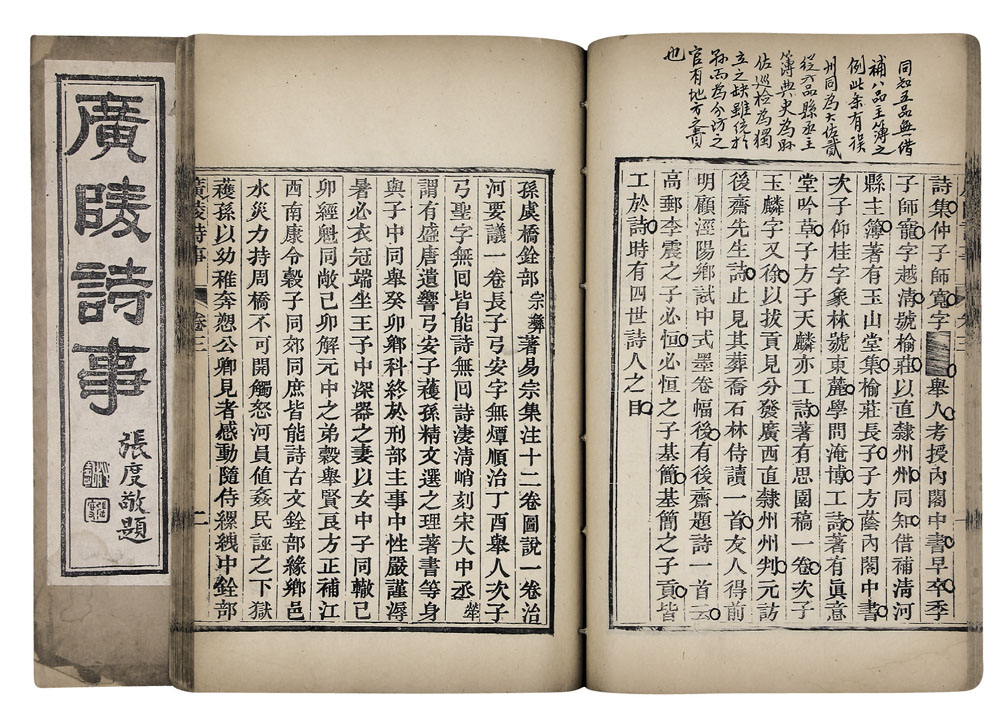 廣陵詩事
張度敬題
同知五品無借
補八品主簿之
例此条有误
州同為大佐貳
從六品縣丞主
簿典史為縣
佐巡检為獨
立之缺雖统於
縣而為分坊之
官有地方之責
也
詩集仲子師寛字舉人考授內閣中書早卒季
子師寵字越清號榆莊以直隸州州同知借補清河
縣主簿著有玉山堂集榆莊長子子方蔭內閣中書
次子仰桂字象林號東麓學問淹博工詩著有眞意
堂吟草子方子天麟亦工詩著有思園稿一卷次子
玉麟字又徐以拔貢見分發廣西直隸州州判元訪
後齋先生詩止見其葬喬石林侍讀一首友人得前
明顧涇陽鄉試中式墨卷幅後有後齋題詩一首云
高郵李震之子必恒必恒之子基簡基簡之子貢皆
工於詩時有四世詩人之目
孫虞橋銓部宗彝著易宗集注十二卷圖說一卷治
河要議一卷長子弓安字無燂順治丁酉舉人次子
弓聖字無回皆能詩無回詩淒清峭刻宋大中丞犖
謂有盛唐遺響弓安子䕶孫精文選之理著書等身
與子中同舉癸卯鄉科終於刑部主事中性嚴謹溽
暑必衣冠端坐王予中深器之妻以女中子同轍己
卯經魁同敞己卯解元中之弟穀舉賢良方正補江
西南康令穀子同郊同庶皆能詩古文銓部緣鄉邑
水災力持周橋不可開觸怒河員値姦民誣之下獄
䕶孫以幼稚奔愬公卿見者感動隨侍縲絏中銓部
廣陵詩事 卷三 二